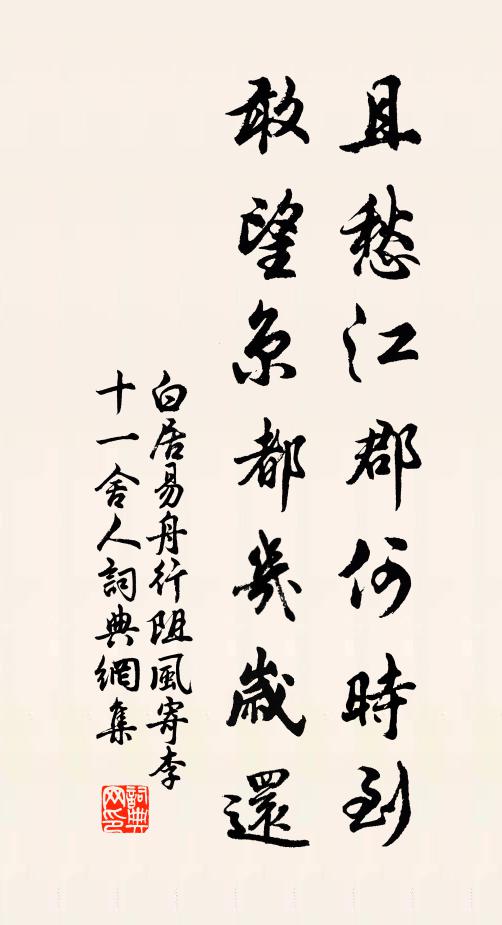 且愁江郡何時到
敢望京都幾歲還
白居易舟行阻風寄李
十一舍人詞典網集
詞典
网印